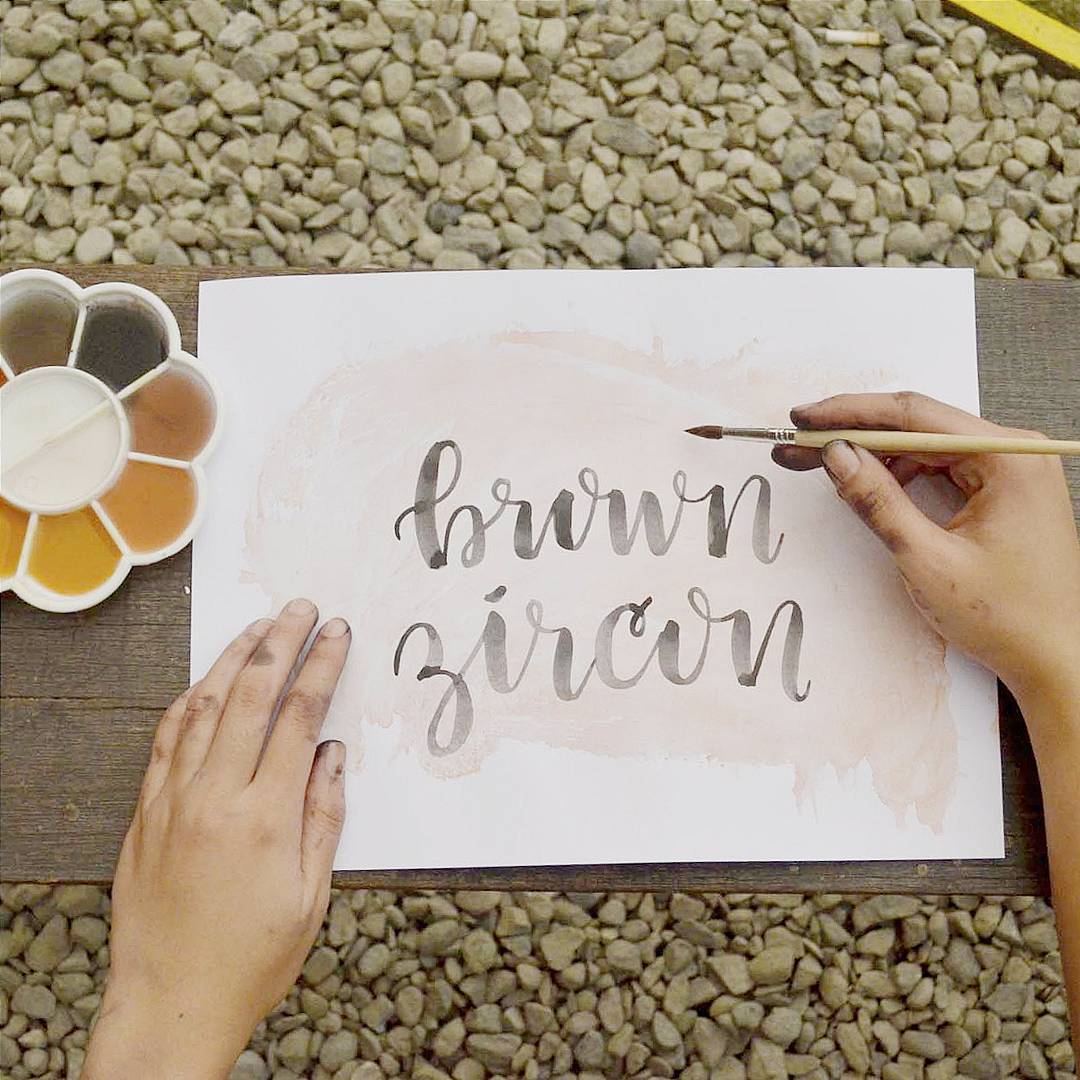 brown
zircon